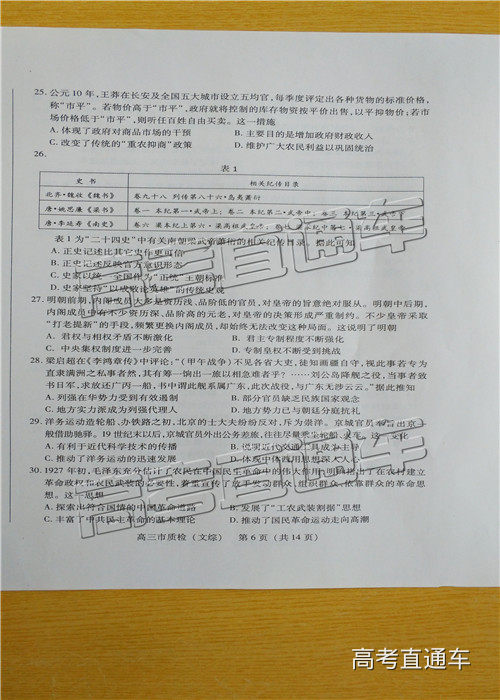 25. 公元 10 年，王莽在长安及全国五大城市设立五均官，每季度评定出各种货物的标准价格，
称“市平”。若物价高于“市平”，政府就将控制的库存物资按平价出售，以平抑物价；若市
场价格低于“市平”，则听任百姓自由买卖。这一措施
A. 体现了政府对商品市场的干预 B. 主要目的是增加政府财政收入
C. 改变了传统的“重农抑商”政策 D. 维护广大农民利益以巩固统治
26.
表 1
史 书 相关纪传目录
北齐·魏收《魏书》 卷九十八 列传第八十六·岛夷萧衍
唐·姚思廉《梁书》 卷一 本纪第一·武帝上；卷二 本纪第二·武帝中；卷三 本纪第三·武帝下
唐·李延寿《南史》 卷六 梁本纪上第六·梁高祖武皇帝
表 1 为“二十四史”中有关南朝梁武帝萧衍的相关纪传目录。据此可知
A. 正史记述比其它史作更可信
B. 正史记述反映官方意识形态
C. 史家以统一全国作为“正统”王朝标准
D. 史家坚持“以成败论英雄”的传统史观
27. 明朝前期，内阁成员大多是资历浅、品阶低的官员，对皇帝的旨意绝对服从。明朝中后期，
内阁成员中有不少资历深、品阶高的元老，对皇帝的决策形成严重制约。不少皇帝采取
“打老提新”的手段，频繁更换内阁成员，却始终无法改变这种局面。这说明了明朝
A. 君权与相权矛盾不断激化 B. 君主专制程度不断强化
C. 中央集权制度进一步完善 D. 专制皇权不断受到挑战
28. 梁启超在《李鸿章传》中评论：“（甲午战争）不见各省大吏，徒知画疆自守，视此事若专为
直隶满洲之私事者然，其有筹一饷出一旅以相急难者乎？……刘公岛降舰之役，当事者致
书日军，求放还广丙一船，书中谓此舰系属广东，此次战役，与广东无涉云云。”据此推知
A. 列强在华势力受到有效遏制 B. 部分官员缺乏民族国家观念
C. 地方实力派成为列强代理人 D. 地方势力已与朝廷分庭抗礼
29. 洋务运动造轮船、办铁路之初，北京的士大夫纷纷反对，斥为崇洋。京城官员不肯出京，一
般借助驰驿。19 世纪末以后，京城官员外出公务差旅，往往尽量乘坐轮船、火车。这一变化
A. 有利于近代科学技术的传播 B. 说明近代交通工具成为主导
C. 推动了洋务运动的迅速发展 D. 体现中体西用思想深入人心
30. 1927 年初，毛泽东充分估计了农民在中国民主革命中的伟大作用，明确指出了在农村建立
革命政权和农民武装的必要性，着重宣传了放手发动群众、组织群众、依靠群众的革命思
想。这一思想
A. 探索出符合国情的中国革命道路 B. 发展了“工农武装割据”思想
C. 丰富了中共民主革命的基本理论 D. 推动了国民革命运动走向高潮
高三市质检（文综） 第 6 页（共 14 页）
高考直通车
高考直通车
高考直通车